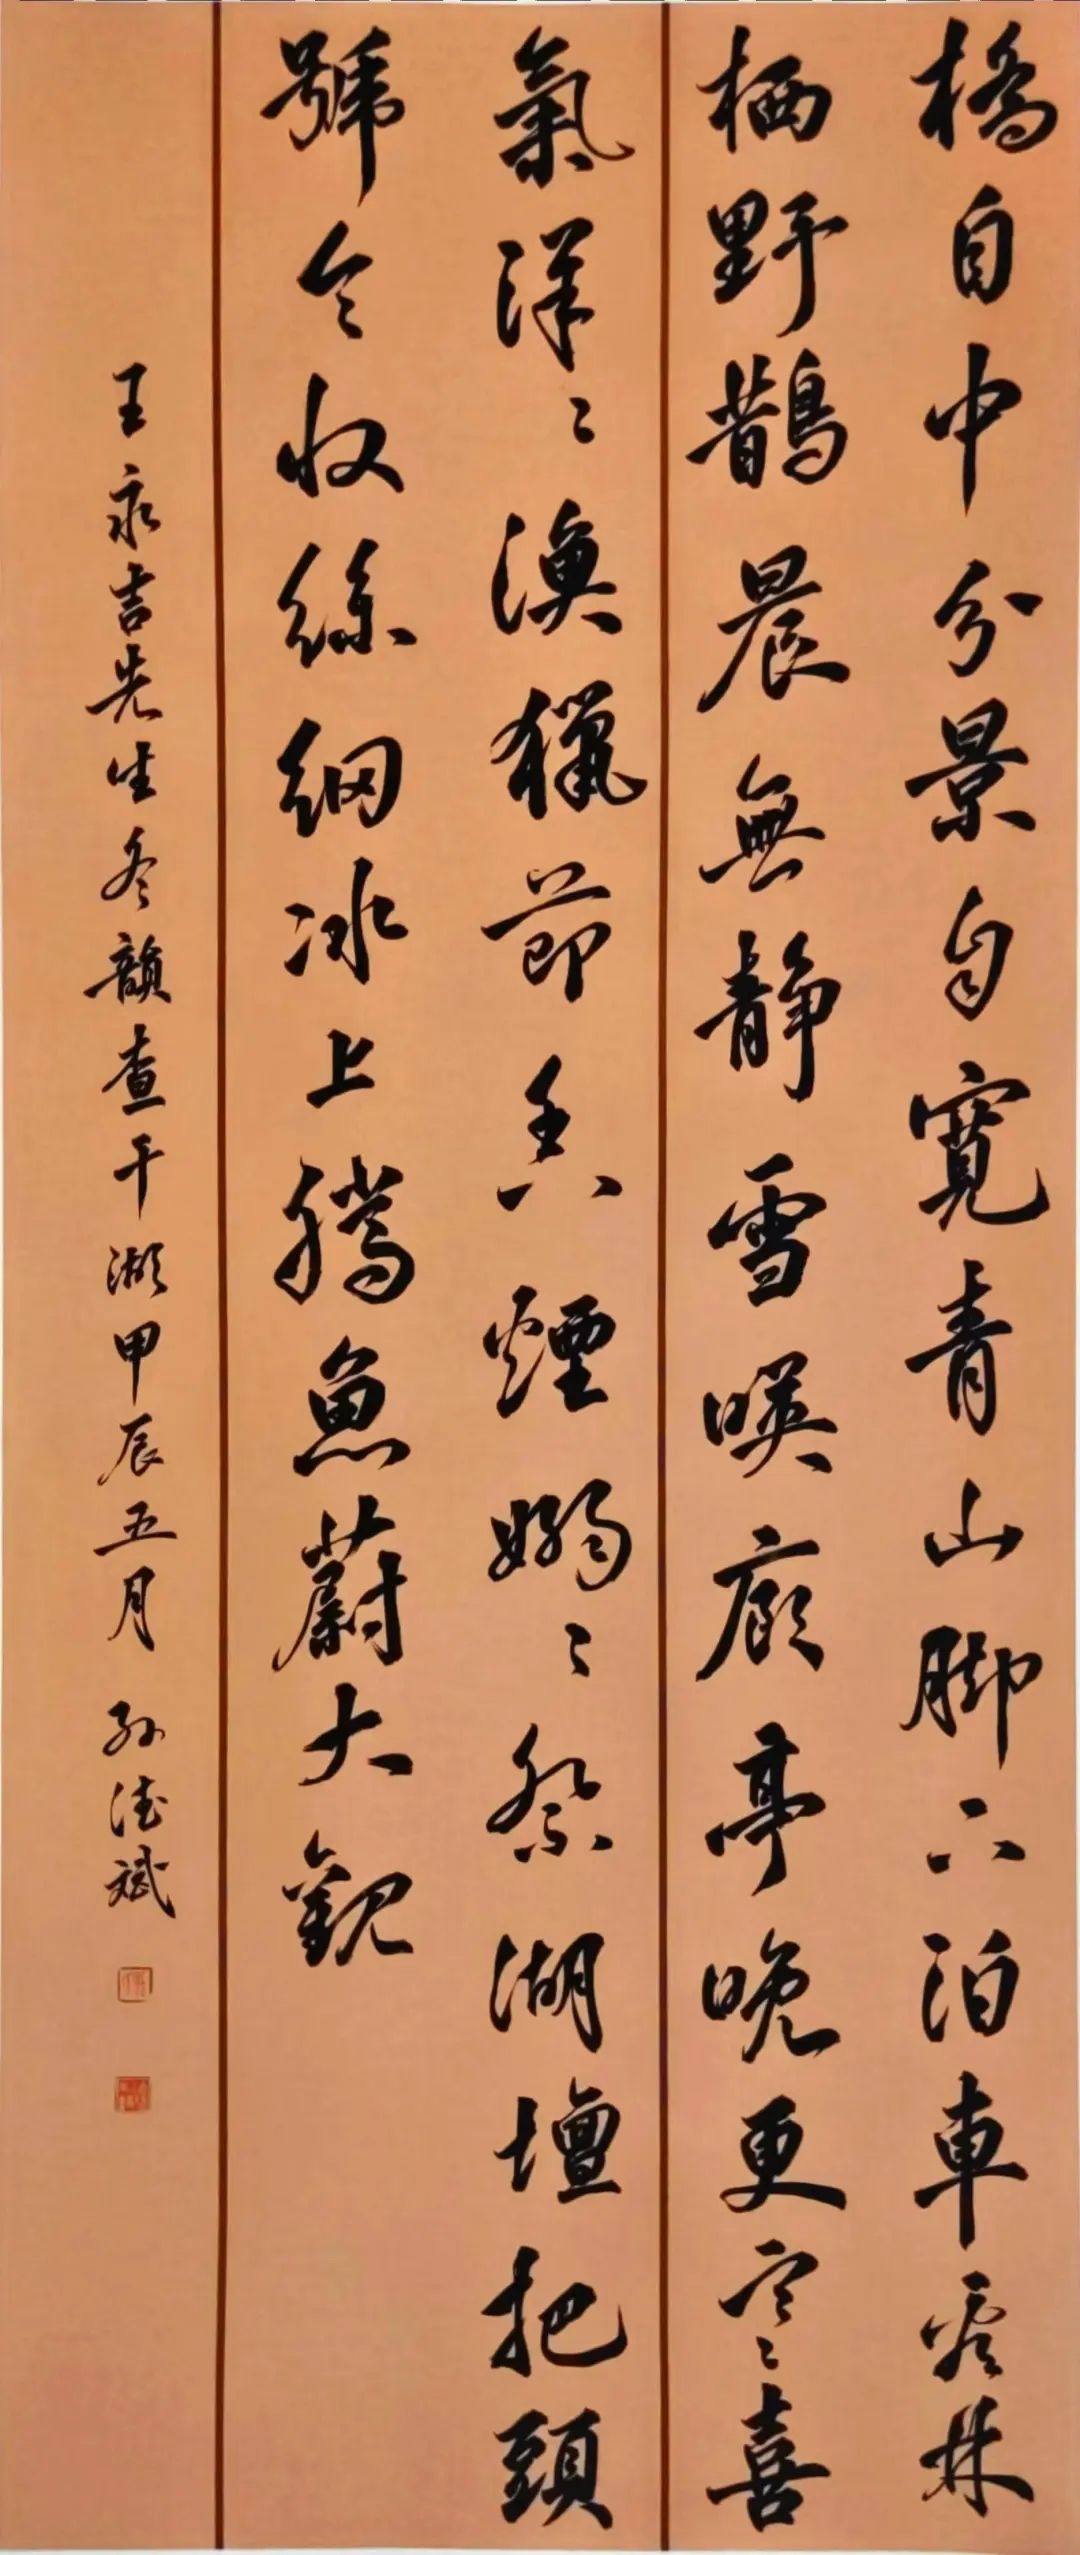 橋自中分景自寬青山脚下泊車林
栖野鵲晨無靜雪暎廊亭晚更寒喜
氣洋〻漁獵節香煙嫋〻祭湖壇把頭
號令收絲網冰上騰魚蔚大觀
王永吉先生冬韻查干湖甲辰五月 孫德斌